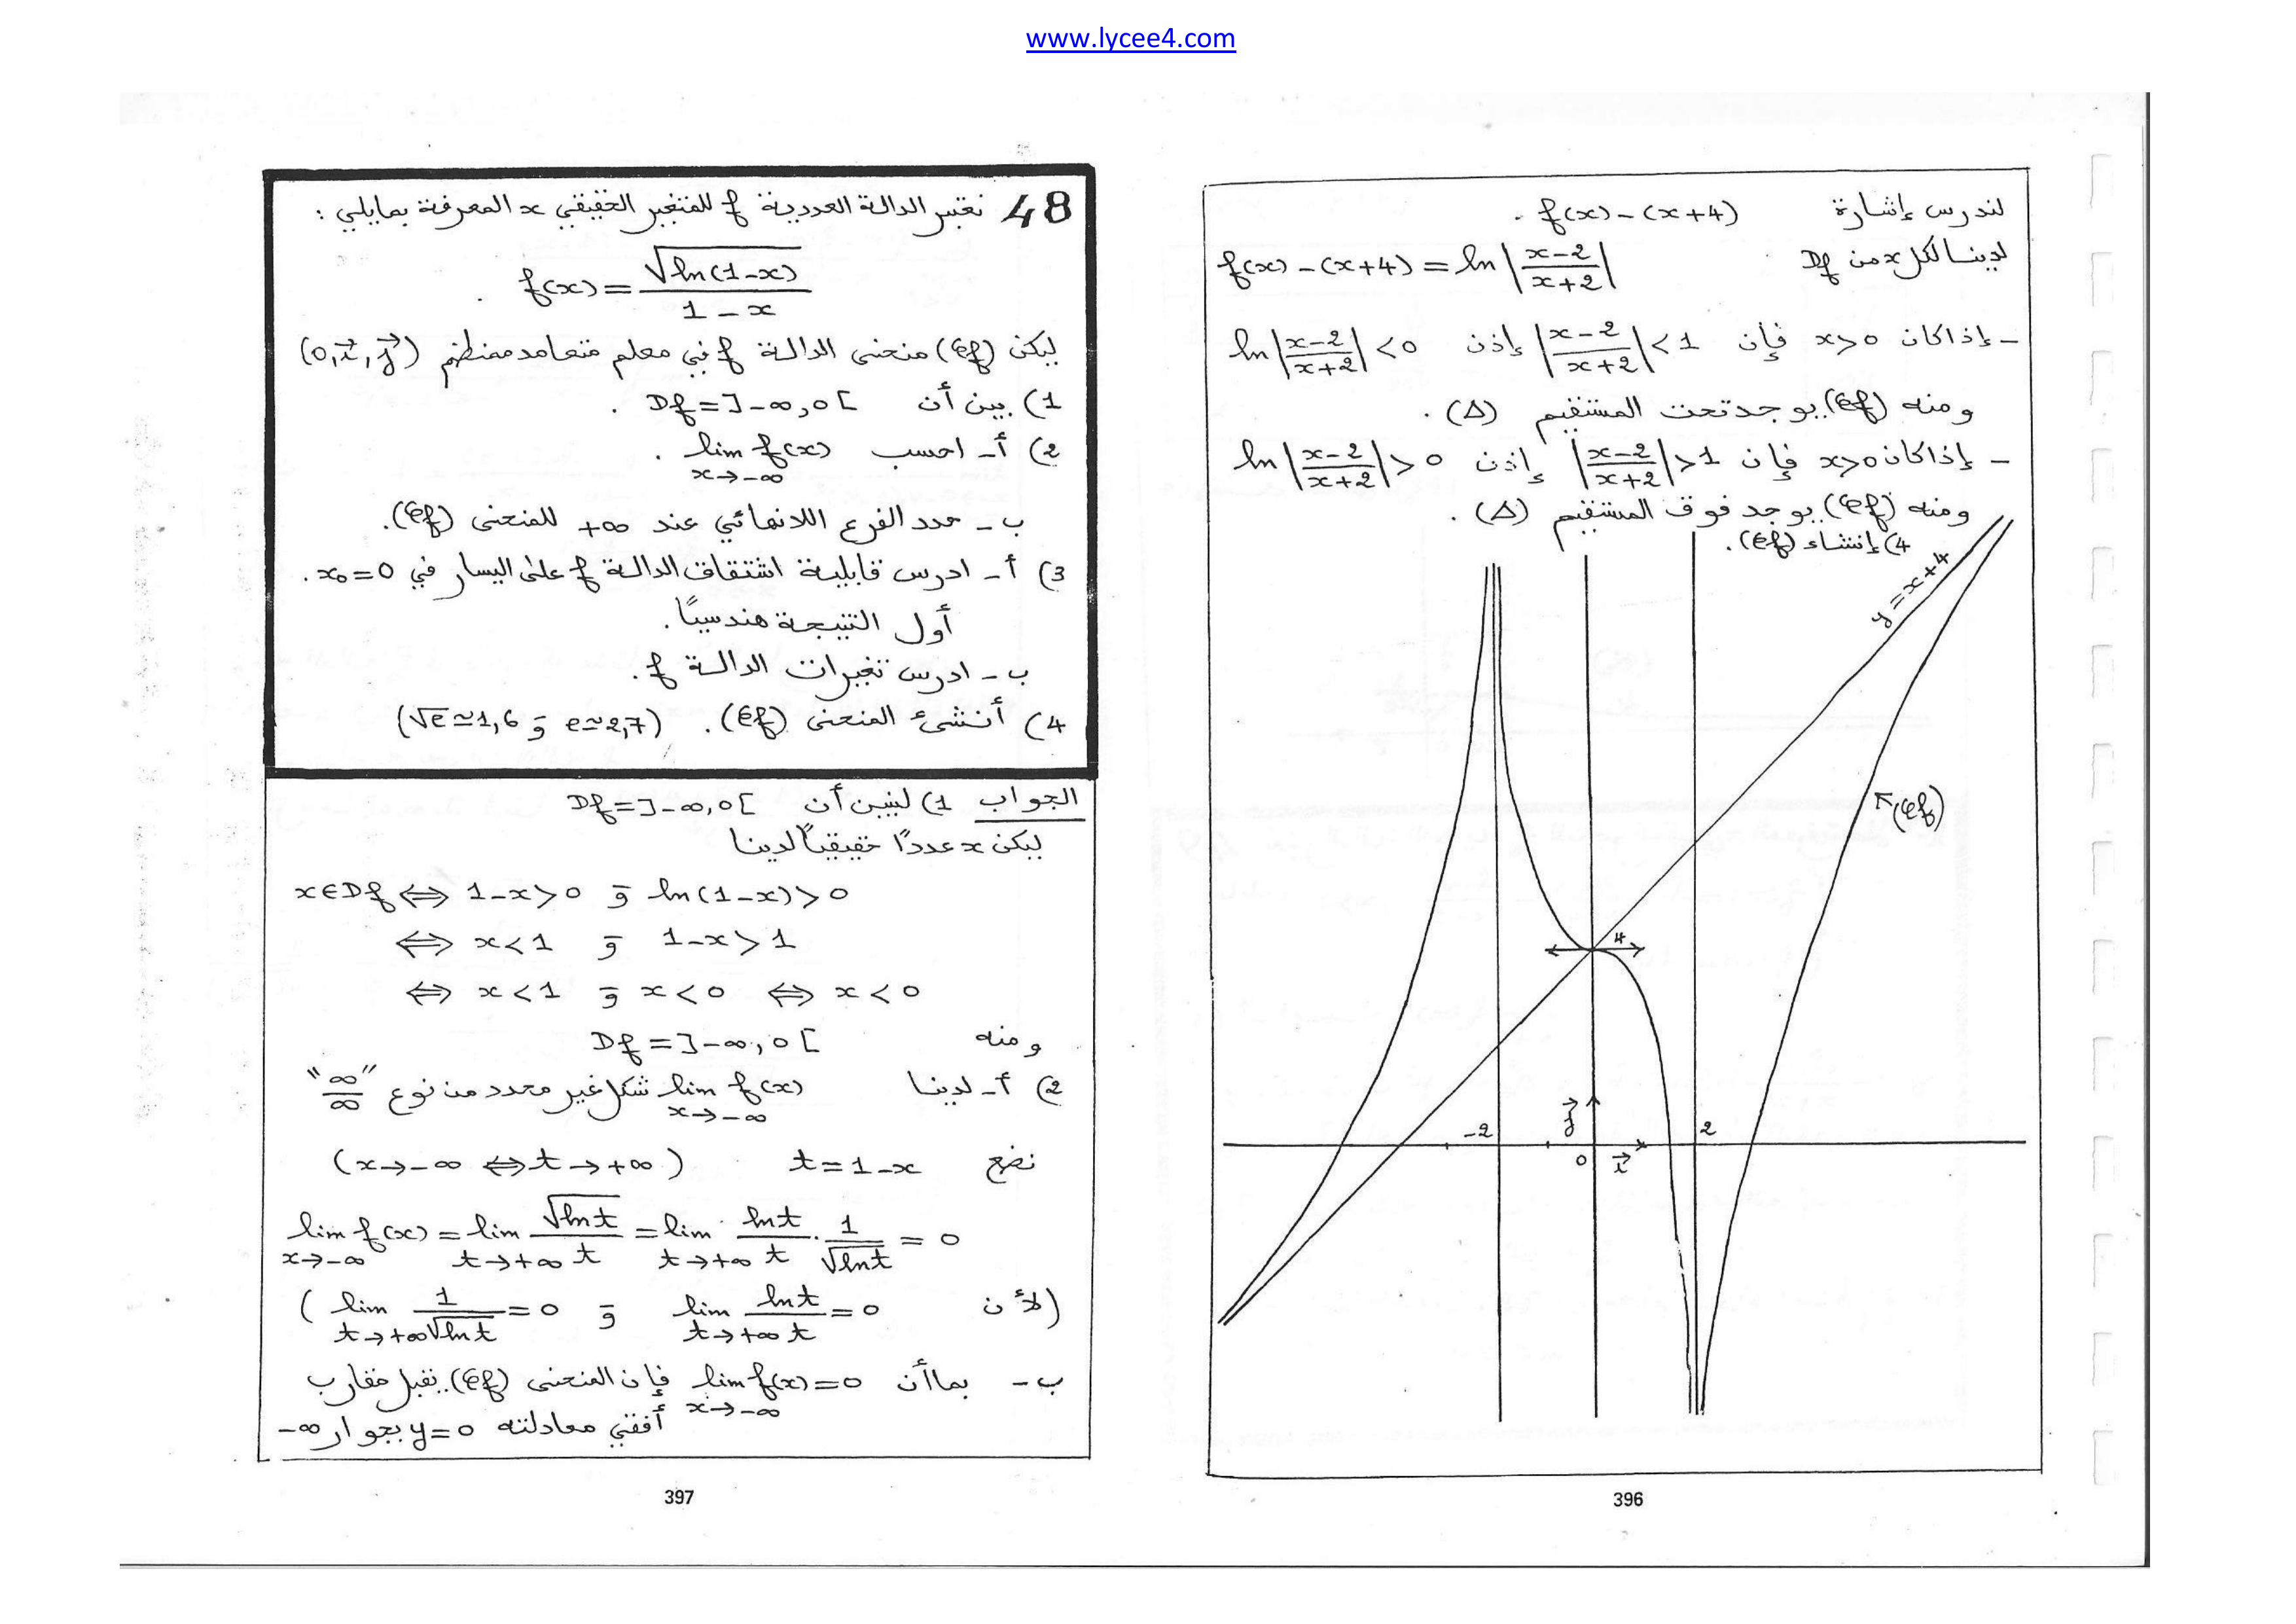 www.lycee4.com
لندرس إشارة f(x) - (x+4) .
لدينا لكل x من Df f(x) - (x+4) = ln|(x-2)/(x+2)|
- إذا كان x>0 فإن |(x-2)/(x+2)| < 1 إذن ln|(x-2)/(x+2)| < 0
ومنه (Cf) يوجد تحت المستقيم (Δ) .
- إذا كان x>0 فإن |(x-2)/(x+2)| > 1 إذن ln|(x-2)/(x+2)| > 0
ومنه (Cf) يوجد فوق المستقيم (Δ) .
4) إنشاء (Cf) .
y = x+4
(Cf)
4
-2 j 2
0 i
396
48 نعتبر الدالة العددية f للمتغير الحقيقي x المعرفة بمايلي :
f(x) = √ln(1-x) / (1-x) .
ليكن (Cf) منحنى الدالة f في معلم متعامد ممنظم (0, i, j)
1) بين أن Df = ]-∞, 0[ .
2) أ- احسب lim f(x) x→-∞ .
ب- حدد الفرع اللانهائي عند +∞ للمنحنى (Cf) .
3) أ- ادرس قابلية اشتقاق الدالة f على اليسار في x₀ = 0 .
أول النتيجة هندسيًا .
ب- ادرس تغيرات الدالة f .
4) أنشئ المنحنى (Cf) . (√e ≃ 1,6 و e ≃ 2,7)
الجواب 1) لنبين أن Df = ]-∞, 0[
ليكن x عددًا حقيقيًا لدينا
x ∈ Df ⟺ 1-x > 0 و ln(1-x) > 0
⟺ x < 1 و 1-x > 1
⟺ x < 1 و x < 0 ⟺ x < 0
ومنه Df = ]-∞, 0[
2) أ- لدينا lim f(x) x→-∞ شكل غير محدد من نوع "∞/∞"
نضع t = 1-x (x→-∞ ⟺ t→+∞)
lim f(x) x→-∞ = lim t→+∞ √ln t / t = lim t→+∞ ln t / t · 1/√ln t = 0
(لأن lim t→+∞ ln t / t = 0 و lim t→+∞ 1/√ln t = 0)
ب- بما أن lim f(x) = 0 x→-∞ فإن المنحنى (Cf) يقبل مقارب
أفقي معادلته y = 0 بجوار -∞
397